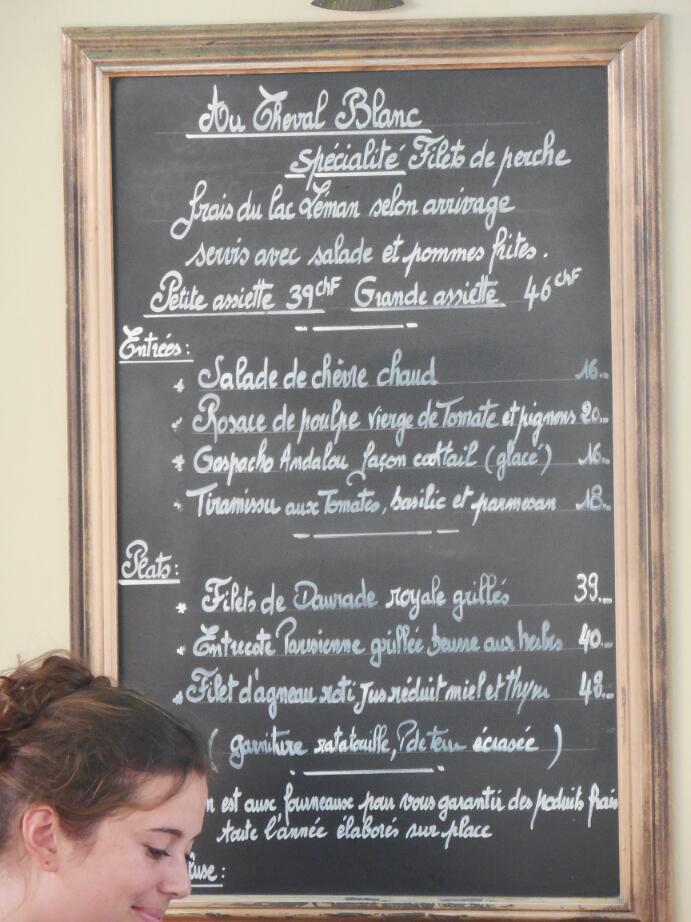 Au Cheval Blanc
Spécialité Filets de perche
frais du lac Léman selon arrivage
servis avec salade et pommes frites.
Petite assiette 39 CHF Grande assiette 46 CHF
Entrées:
* Salade de chèvre chaud 16.-
* Rosace de poulpe vierge de Tomate et pignons 20.-
* Gaspacho Andalou façon cocktail (glacé) 16.-
* Tiramissu aux Tomates, basilic et parmesan 18.-
Plats:
* Filets de Daurade royale grillés 39.-
* Entrecote Parisienne grillée beurre aux herbes 40.-
* Filet d'agneau roti Jus réduit miel et thym 42.-
(garniture ratatouille, P de terre écrasée)
est aux fourneaux pour vous garantir des produits frais
toute l'année élaborés sur place